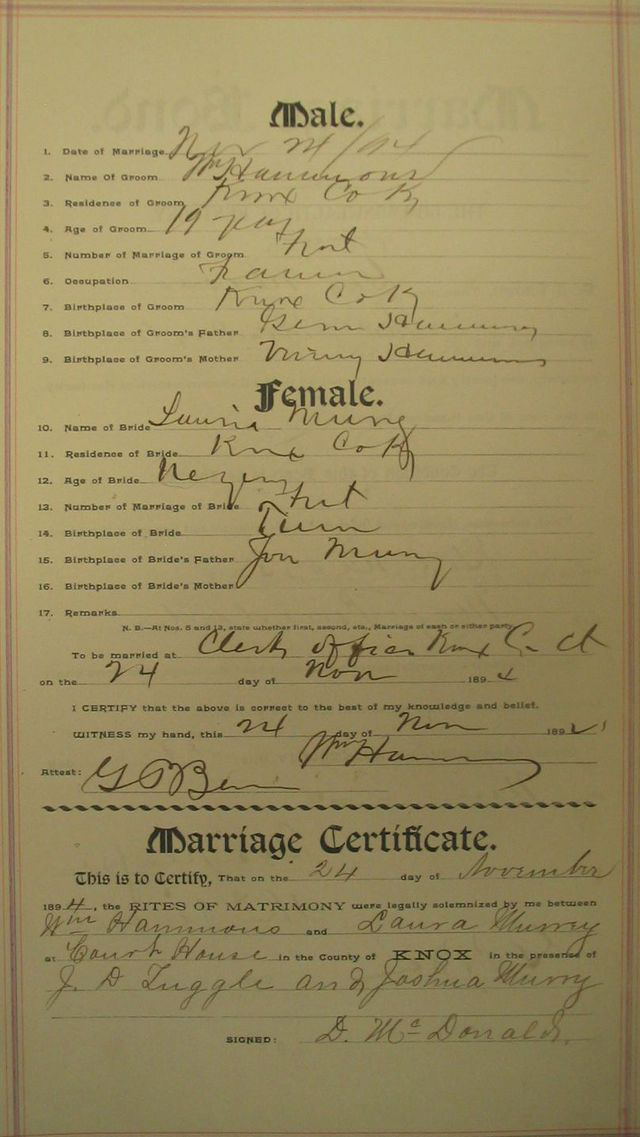 Male.
1. Date of Marriage Nov 24 / 94
2. Name Of Groom Wm Hammons
3. Residence of Groom Knox Co Ky
4. Age of Groom 19 years
5. Number of Marriage of Groom First
6. Occupation Farmer
7. Birthplace of Groom Knox Co Ky
8. Birthplace of Groom's Father Hammons
9. Birthplace of Groom's Mother Hammons
Female.
10. Name of Bride Laura Murry
11. Residence of Bride Knox Co Ky
12. Age of Bride
13. Number of Marriage of Bride First
14. Birthplace of Bride Tenn
15. Birthplace of Bride's Father Murry
16. Birthplace of Bride's Mother
17. Remarks
N. B.—At Nos. 5 and 13, state whether first, second, etc., Marriage of each or either party.
To be married at Clerks office Knox Co Ct
on the 24 day of Nov 1894
I CERTIFY that the above is correct to the best of my knowledge and belief.
WITNESS my hand, this 24 day of Nov 189
Wm Hammons
Attest:
Marriage Certificate.
This is to Certify, That on the 24 day of November
1894, the RITES OF MATRIMONY were legally solemnized by me between
Wm Hammons and Laura Murrey
at Court House in the County of KNOX in the presence of
J. D Tuggle and Joshua Murry
SIGNED: D. McDonald.